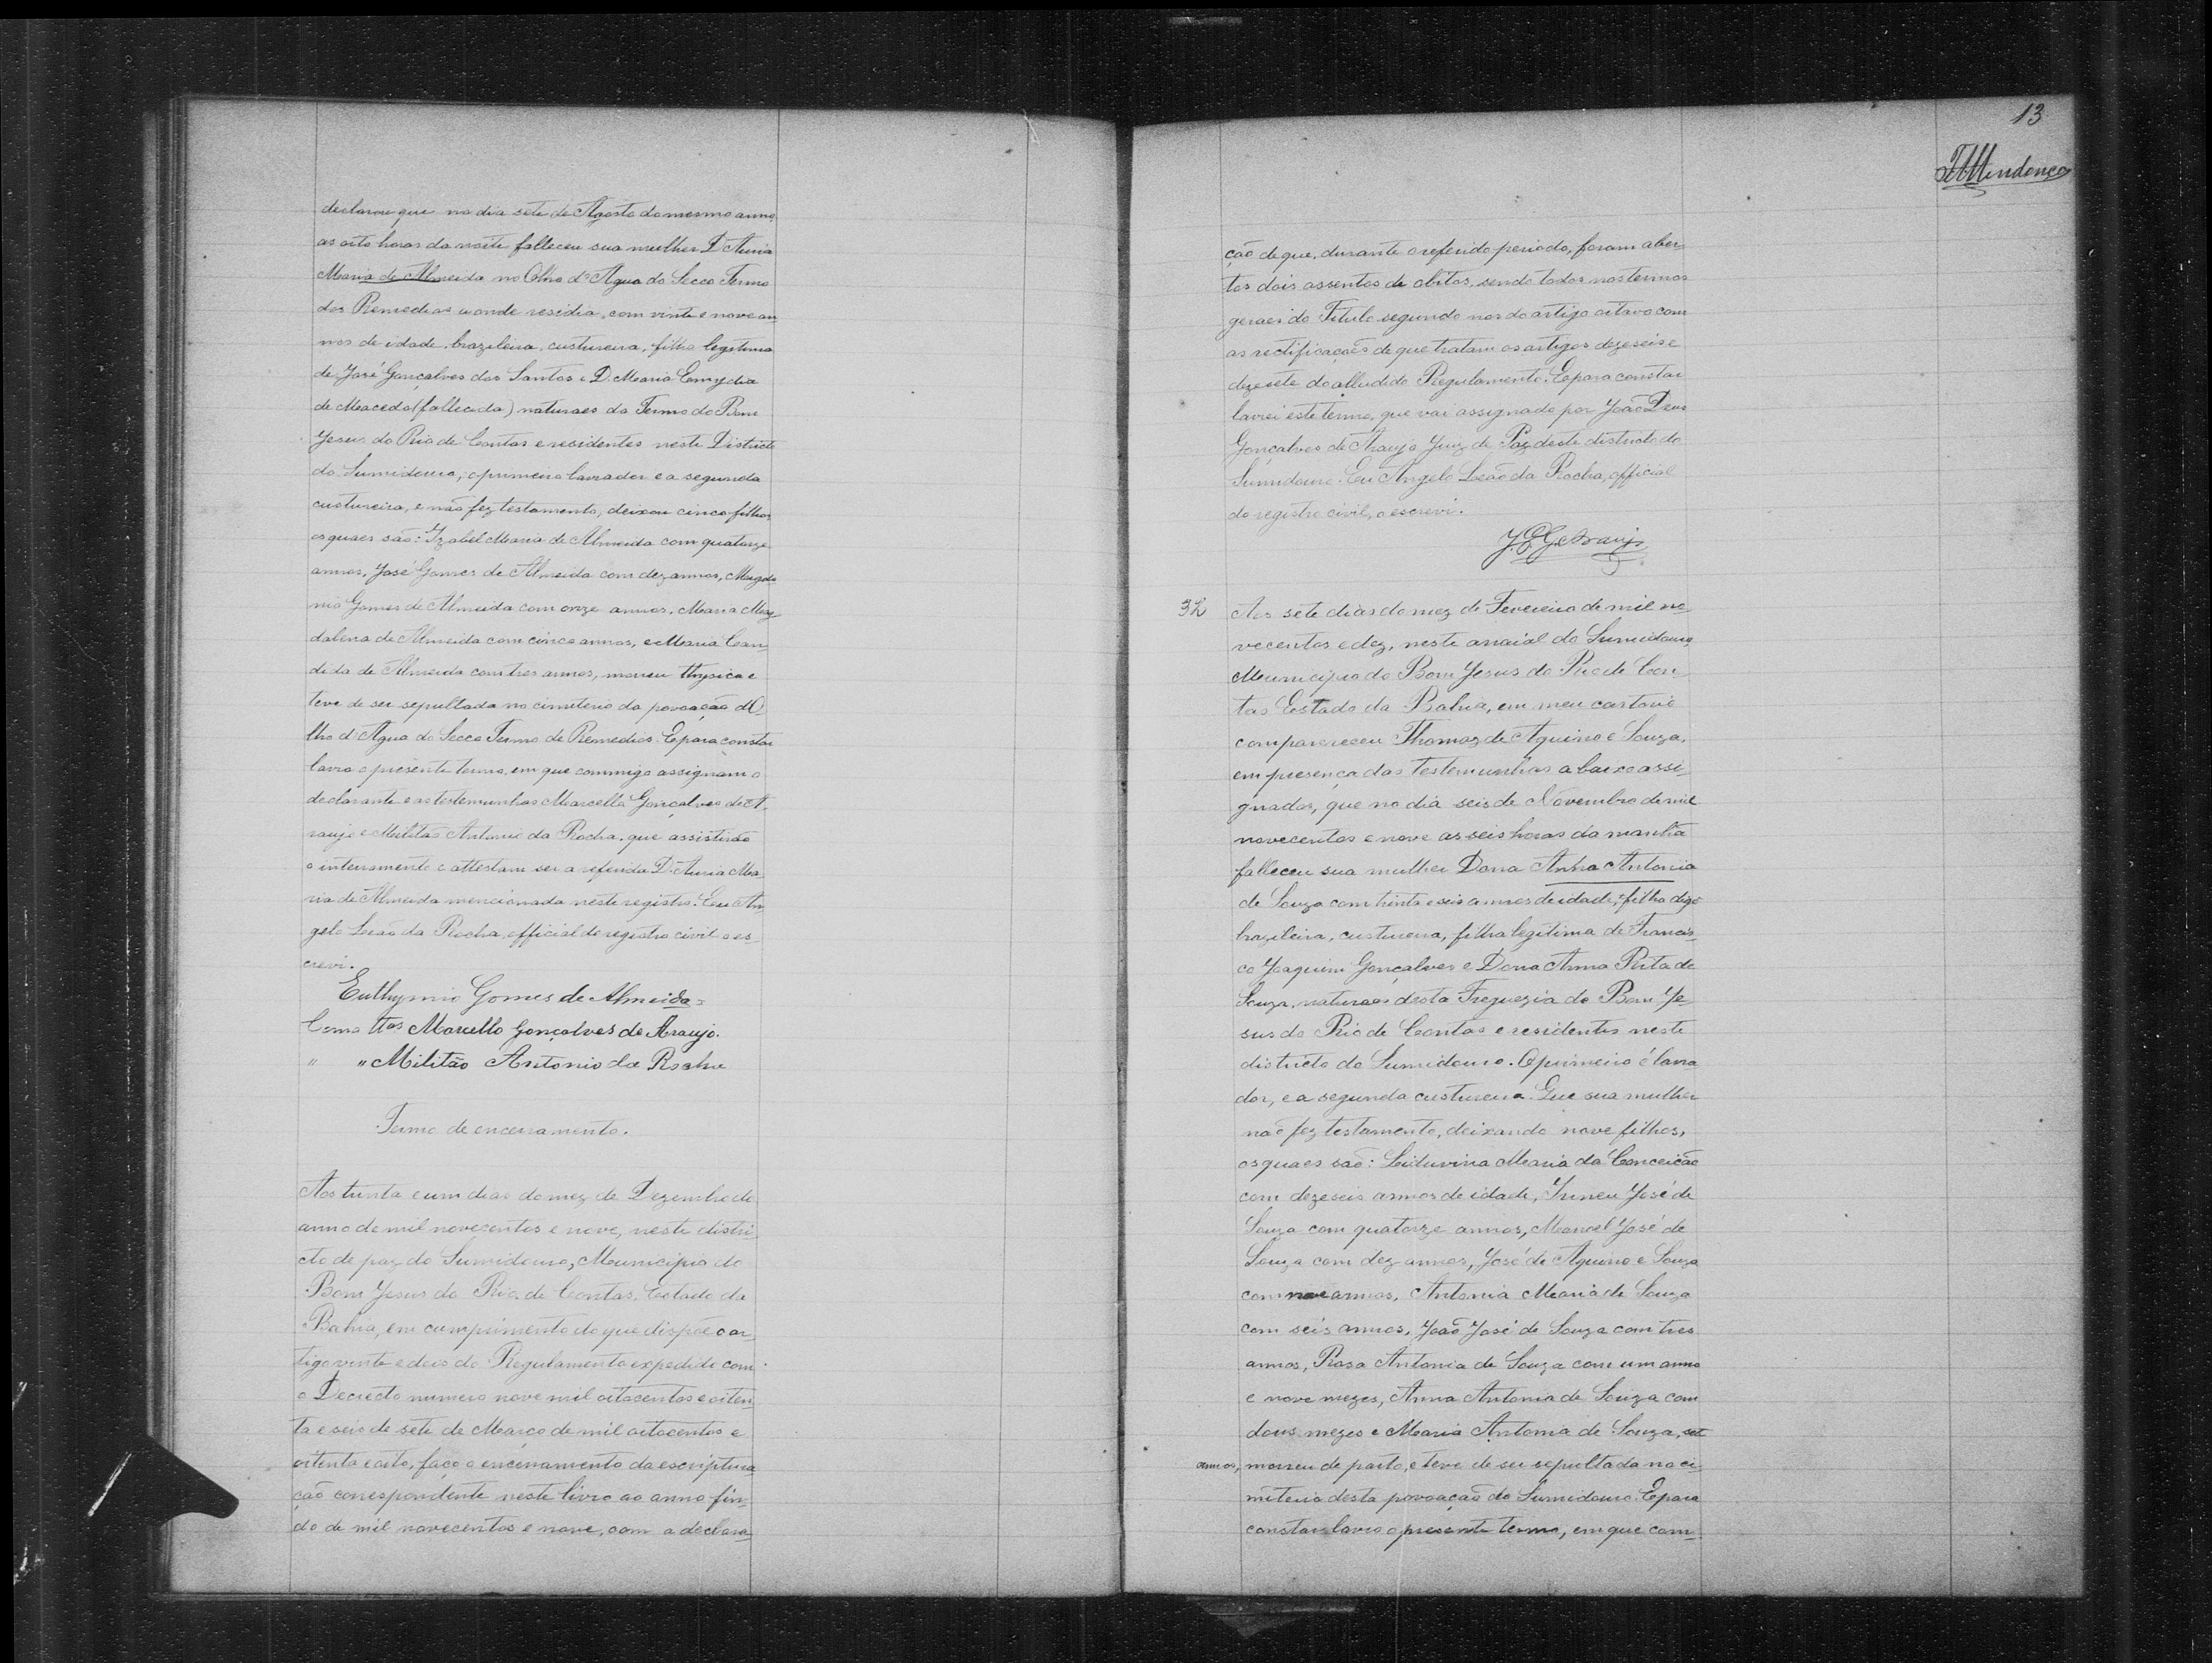 declarou que no dia sete de Agosto do mesmo anno,
as oito horas da noite falleceu sua mulher D. Auria
Maria de Almeida no Olho d'Agua do Secco Termo
dos Remedios aonde residia, com vinte e nove an
nos de idade, brazileira, custureira, filha legitima
de José Gonçalves dos Santos e D. Maria Emydia
de Macedo (fallecida) naturaes do Termo do Bom
Jesus do Rio de Contas e residentes neste Districto
do Sumidouro, o primeiro lavrador e a segunda
custureira, e não fez testamento, deixou cinco filhos
os quaes são: Izabel Maria de Almeida com quatorze
annos, José Gomes de Almeida com dez annos,
Gomes de Almeida com onze annos, Maria Mag
dalena de Almeida com cinco annos, e Maria Can
dida de Almeida com tres annos, morreu thysica e
teve de ser sepultada no cimiterio da povoação d'O
lho d'Agua do Secco Termo de Remedios. E para constar
lavro o presente termo, em que commigo assignam o
declarante e as testemunhas Marcello Gonçalves de A
raujo e Militão Antonio da Rocha, que assistirão
o interramento e attestam ser a referida D. Auria Ma
ria de Almeida mencionada neste registro. Eu An
gelo Leão da Rocha, official do registro civil o es-
crevi.
Euthymio Gomes de Almeida =
Como ttas Marcello Gonçalves de Araujo.
" " Militão Antonio da Rocha
Termo de encerramento.
Aos trinta e um dias do mez de Dezembro do
anno de mil novecentos e nove, neste distri
cto de paz do Sumidouro, Municipio do
Bom Jesus do Rio de Contas, Estado da
Bahia, em cumprimento do que dispõe o ar
tigo vinte e dois do Regulamento expedido com
o Decreto numero nove mil oitocentos e oiten
ta e seis de sete de Março de mil oitocentos e
oitenta e oito, faço o encerramento da escriptura
ção correspondente neste livro ao anno fin-
do de mil novecentos e nove, com a declara
13
ção de que, durante o referido periodo, foram aber
tos dois assentos de obitos, sendo todos nos termos
geraes do Titulo segundo nos do artigo oitavo com
as rectificações de que tratam os artigos dezeseis e
dezesete do alludido Regulamento. E para constar
lavrei este termo, que vai assignado por João Deus
Gonçalves de Araujo Juiz de Paz deste districto do
Sumidouro. Eu Angelo Leão da Rocha, official
do registro civil, o escrevi.
Aos sete dias do mez de Fevereiro de mil no
vecentos e dez, neste arraial do Sumidouro,
Municipio do Bom Jesus do Rio de Con
tas Estado da Bahia, em meu cartorio
compareceu Thomaz de Aquino e Souza,
em presença das testemunhas abaixo assi-
gnadas, que no dia seis de Novembro de mil
novecentos e nove as seis horas da manhã
falleceu sua mulher Dona Anna Antonia
de Souza com trinta e seis annos de idade, filha digo
brazileira, custureira, filha legitima de Francis-
co Joaquim Gonçalves e Dona Anna Rita de
Souza, naturaes desta Freguezia do Bom Je
sus do Rio de Contas e residentes neste
districto do Sumidouro. O primeiro é lavra
dor, e a segunda custureira. Que sua mulher
não fez testamento, deixando nove filhos,
os quaes são: Leiduvina Maria da Conceição
com dezeseis annos de idade, Irineu José de
Souza com quatorze annos, Manoel José de
Souza com dez annos, José de Aquino e Souza
com nove annos, Antonia Maria de Souza
com seis annos, João José de Souza com tres
annos, Rosa Antonia de Souza com um anno
e nove mezes, Anna Antonia de Souza com
dous mezes e Maria Antonia de Souza, sete
annos, morreu de parto, e teve de ser sepultada no ci-
miterio desta povoação do Sumidouro. E para
constar lavro o presente termo, em que com